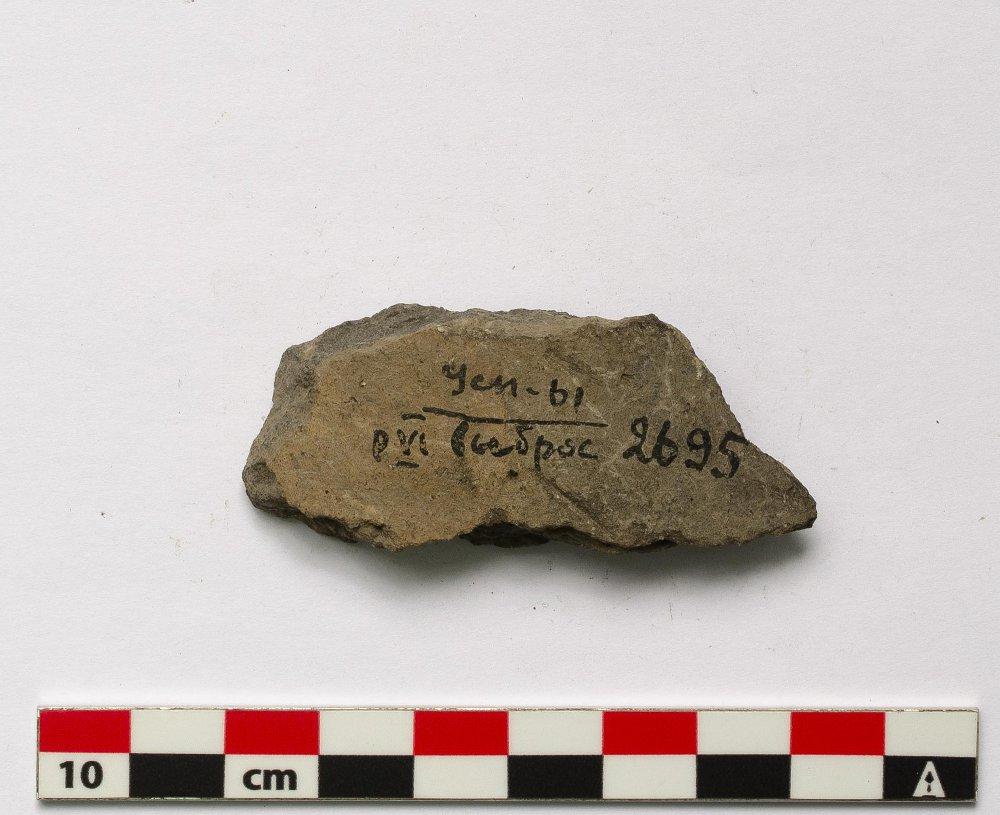 Усп-ы
р VI выброс 2695
10 cm
A